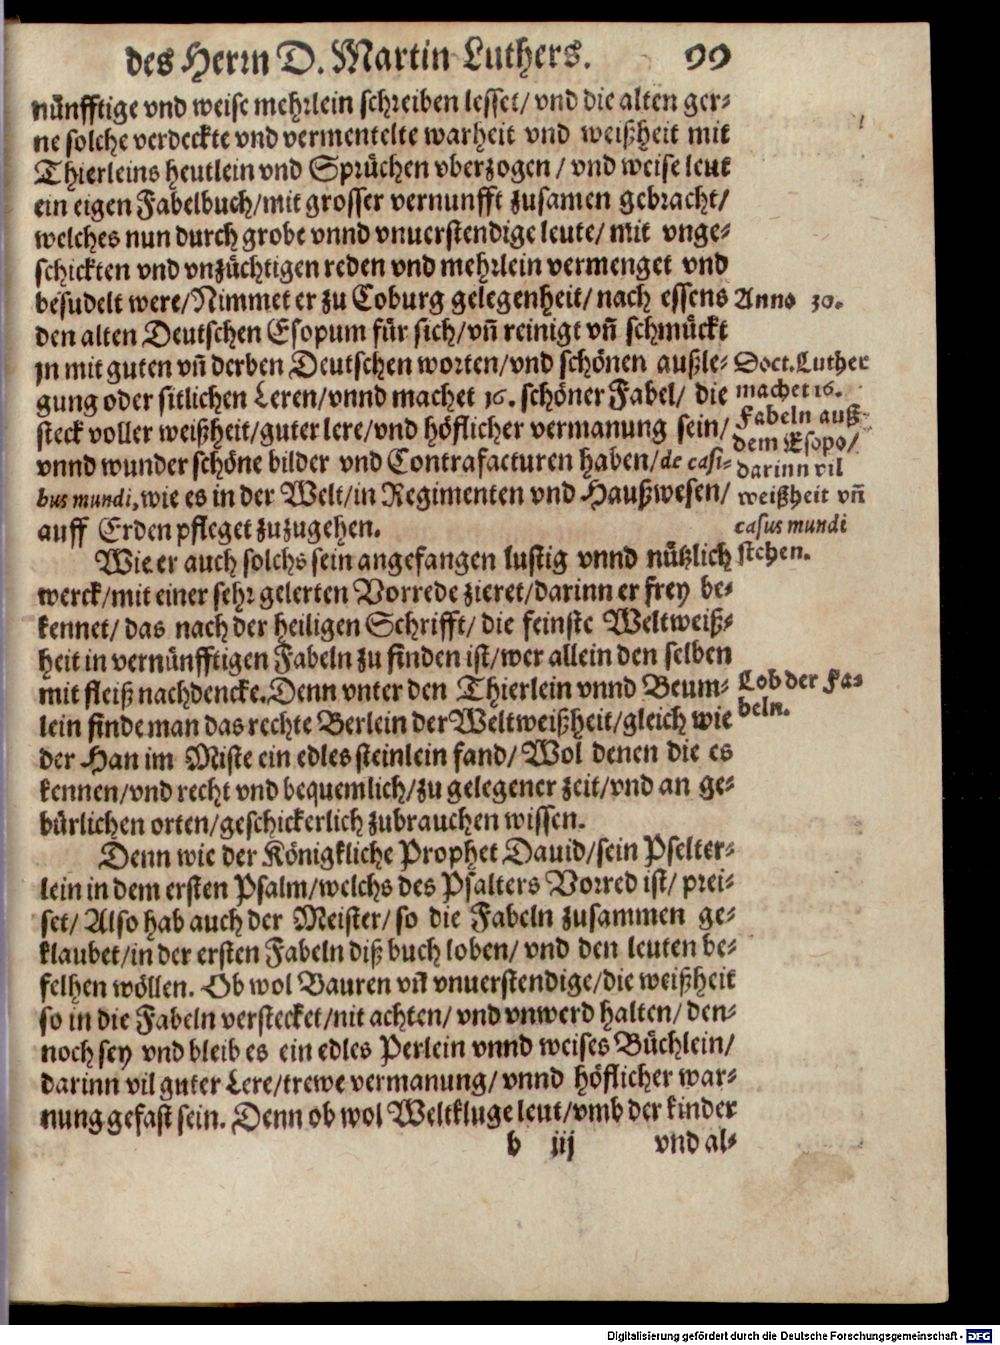 des Herrn D. Martin Luthers. 99
nünfftige vnd weise mehrlein schreiben lesset/ vnd die alten ger-
ne solche verdeckte vnd vermentelte warheit vnd weißheit mit
Thierleins heutlein vnd Sprüchen vberzogen / vnd weise leut
ein eigen Fabelbuch/mit grosser vernunfft zusamen gebracht/
welches nun durch grobe vnnd vnuerstendige leute/ mit vnge-
schickten vnd vnzüchtigen reden vnd mehrlein vermenget vnd
besudelt were/Nimmet er zu Coburg gelegenheit/ nach essens
den alten Deutschen Esopum für sich/vñ reinigt vñ schmückt
jn mit guten vñ derben Deutschen worten/vnd schönen außle-
gung oder sitlichen Leren/vnnd machet 16. schöner Fabel/ die
steck voller weißheit/guter lere/vnd höflicher vermanung sein/
vnnd wunder schöne bilder vnd Contrafacturen haben/de casi-
bus mundi,wie es in der Welt/in Regimenten vnd Haußwesen/
auff Erden pfleget zuzugehen.
Anno 30.
Doct. Luther
machet 16.
Fabeln auß
dem Esopo/
darinn vil
weißheit vñ
casus mundi
stehen.
Wie er auch solchs sein angefangen lustig vnnd nützlich
werck/mit einer sehr gelerten Vorrede zieret/darinn er frey be-
kennet/ das nach der heiligen Schrifft/ die feinste Weltweiß-
heit in vernünfftigen Fabeln zu finden ist/wer allein den selben
mit fleiß nachdencke. Denn vnter den Thierlein vnnd Beum-
lein finde man das rechte Berlein der Weltweißheit/gleich wie
der Han im Miste ein edles steinlein fand/ Wol denen die es
kennen/vnd recht vnd bequemlich/zu gelegener zeit/vnd an ge-
bürlichen orten/geschickerlich zubrauchen wissen.
Lob der Fa-
beln.
Denn wie der Königkliche Prophet Dauid/sein Pselter-
lein in dem ersten Psalm/welchs des Psalters Vorred ist/ prei-
set/ Also hab auch der Meister/ so die Fabeln zusammen ge-
klaubet/in der ersten Fabeln diß buch loben/ vnd den leuten be-
felhen wöllen. Ob wol Bauren vñ vnuerstendige/die weißheit
so in die Fabeln verstecket/nit achten/ vnd vnwerd halten/ den-
noch sey vnd bleib es ein edles Perlein vnnd weises Büchlein/
darinn vil guter Lere/trewe vermanung/ vnnd höflicher war-
nung gefast sein. Denn ob wol Weltkluge leut/vmb der kinder
b iij vnd al-
Digitalisierung gefördert durch die Deutsche Forschungsgemeinschaft - DFG